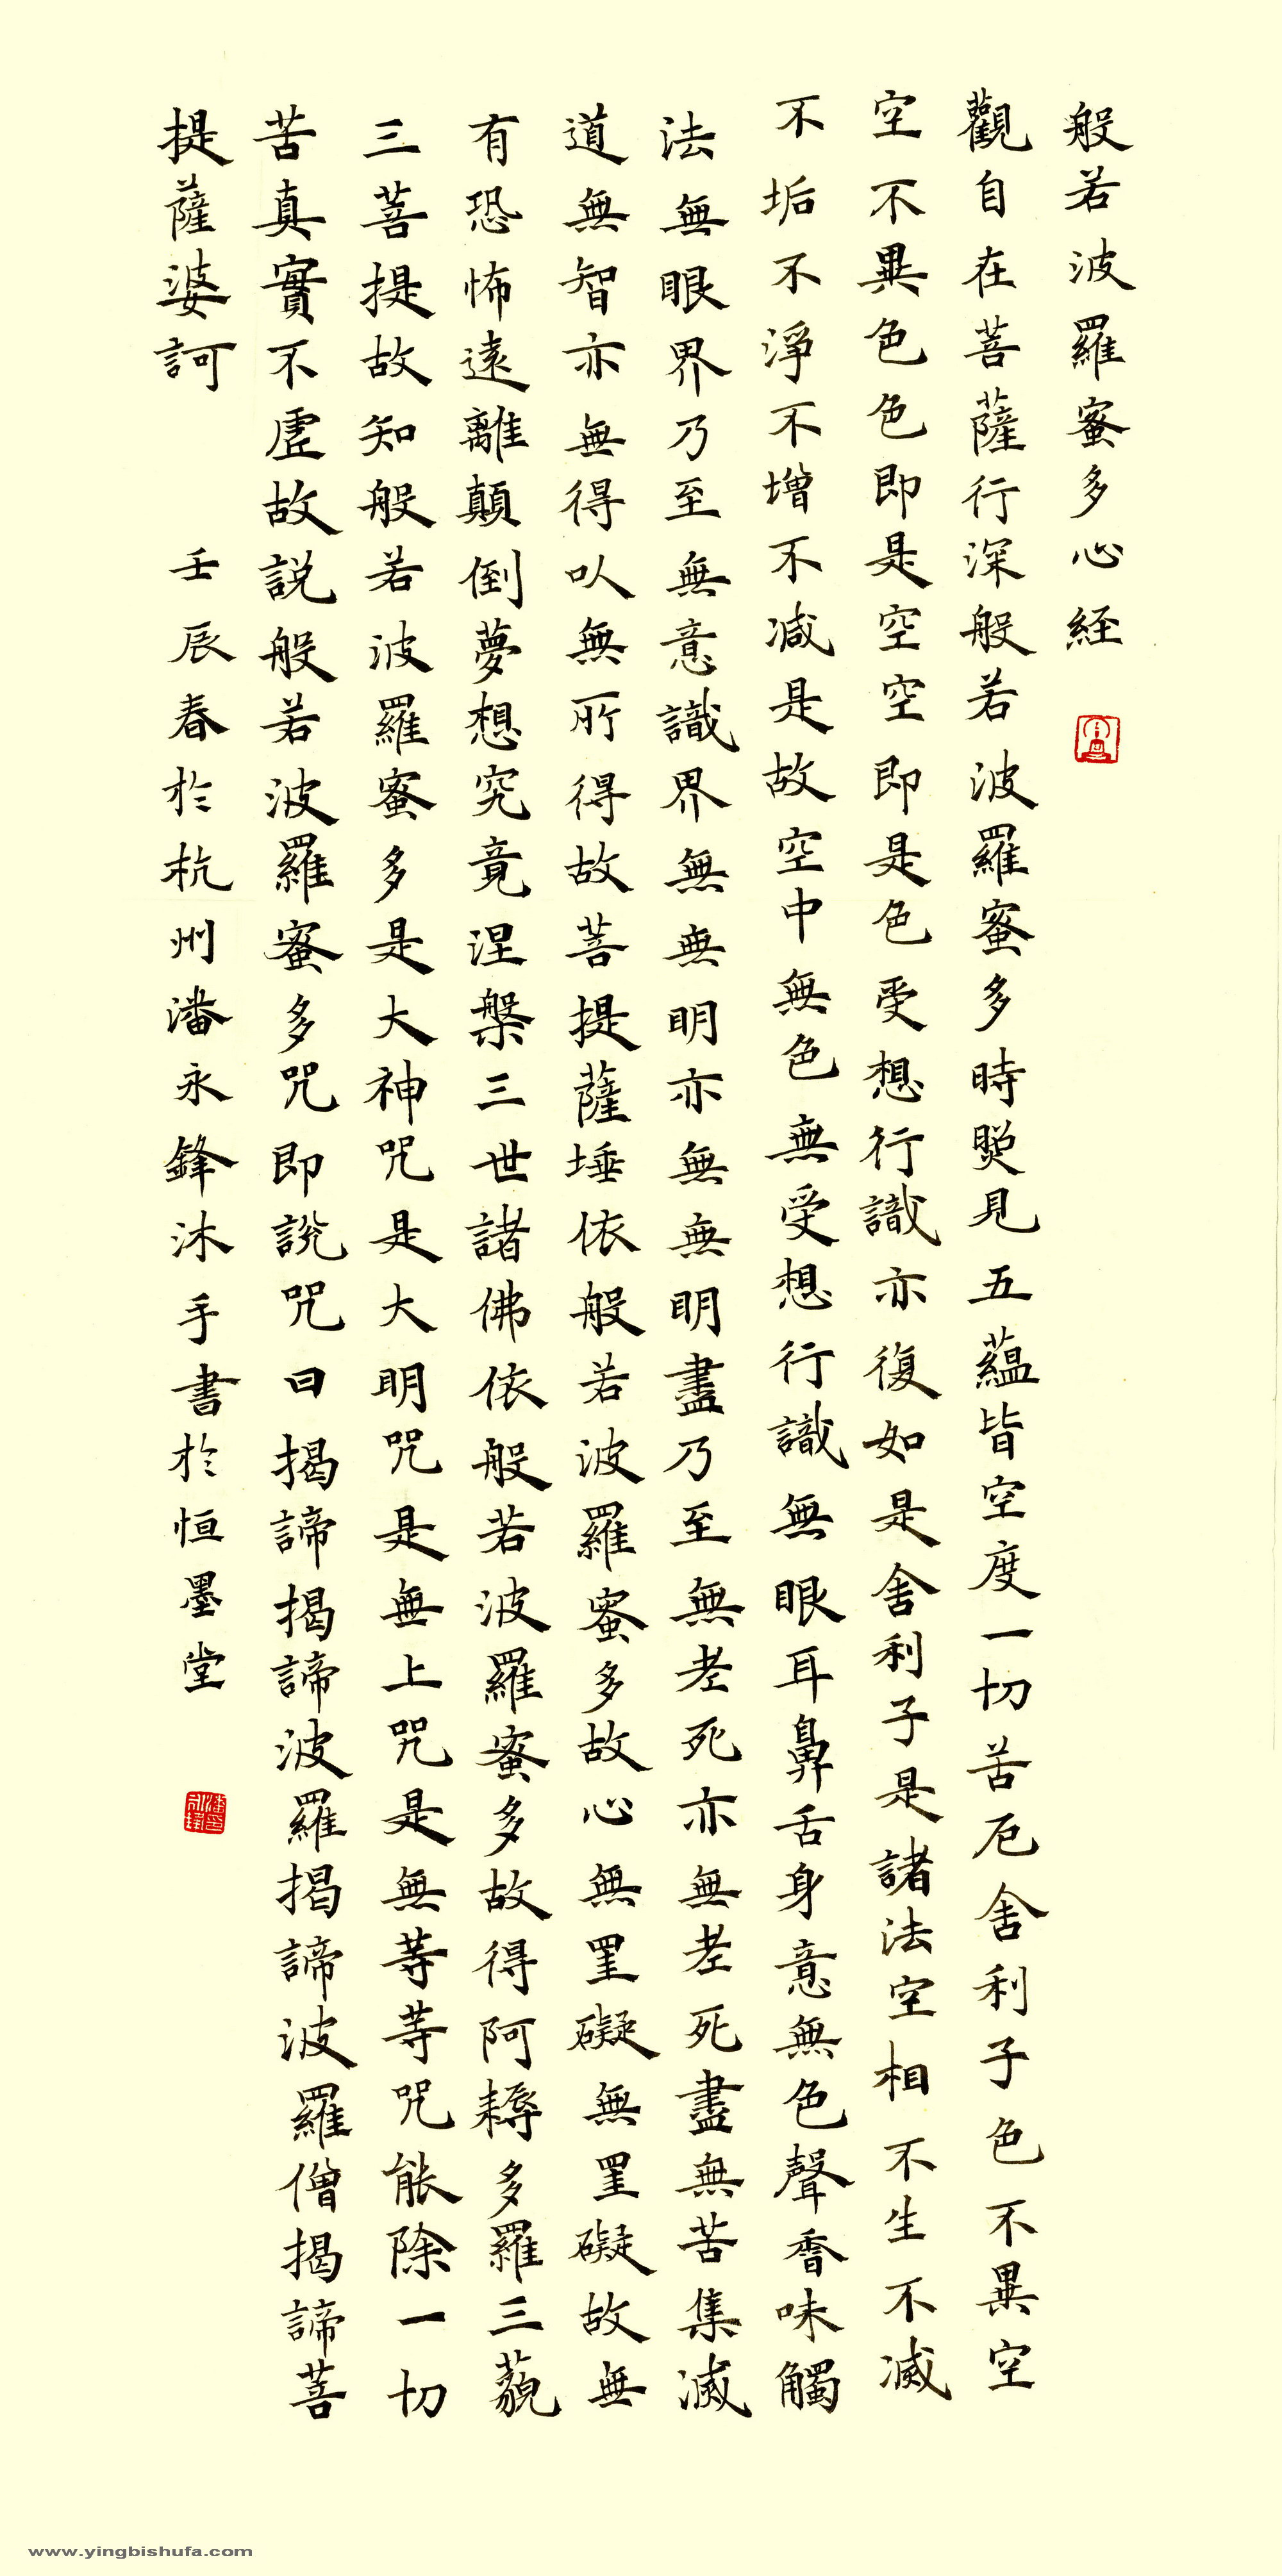 般若波羅蜜多心経
觀自在菩薩行深般若波羅蜜多時照見五蘊皆空度一切苦厄舍利子色不異空
空不異色色即是空空即是色受想行識亦復如是舍利子是諸法空相不生不滅
不垢不淨不增不減是故空中無色無受想行識無眼耳鼻舌身意無色聲香味觸
法無眼界乃至無意識界無無明亦無無明盡乃至無老死亦無老死盡無苦集滅
道無智亦無得以無所得故菩提薩埵依般若波羅蜜多故心無罣礙無罣礙故無
有恐怖遠離顛倒夢想究竟涅槃三世諸佛依般若波羅蜜多故得阿耨多羅三藐
三菩提故知般若波羅蜜多是大神咒是大明咒是無上咒是無等等咒能除一切
苦真實不虛故説般若波羅蜜多咒即說咒曰揭諦揭諦波羅揭諦波羅僧揭諦菩
提薩婆訶 壬辰春於杭州潘永鋒沐手書於恒墨堂
www.yingbishufa.com